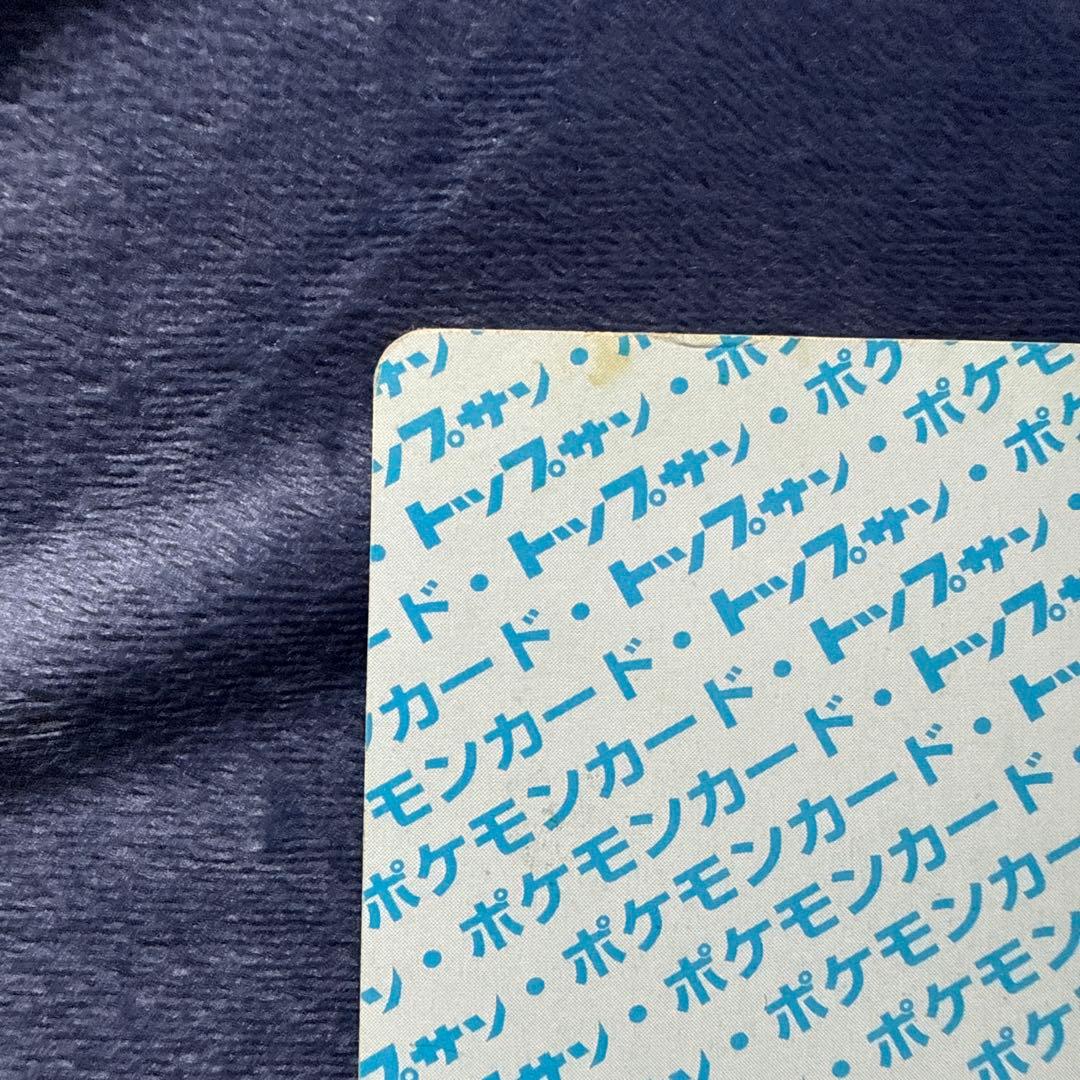 サン
ップサン・
・トップサン・ポ
ード・トップサン・ポケ
ンカード・トップサン・ポケモ
モンカード・トップサン・ポケ
ポケモンカード・トップサン・
ン・ポケモンカード・トップサ
プサン・ポケモンカード・トッ
ップサン・ポケモンカード・
ン・ポケモンカー
・ポケモン
ポケ